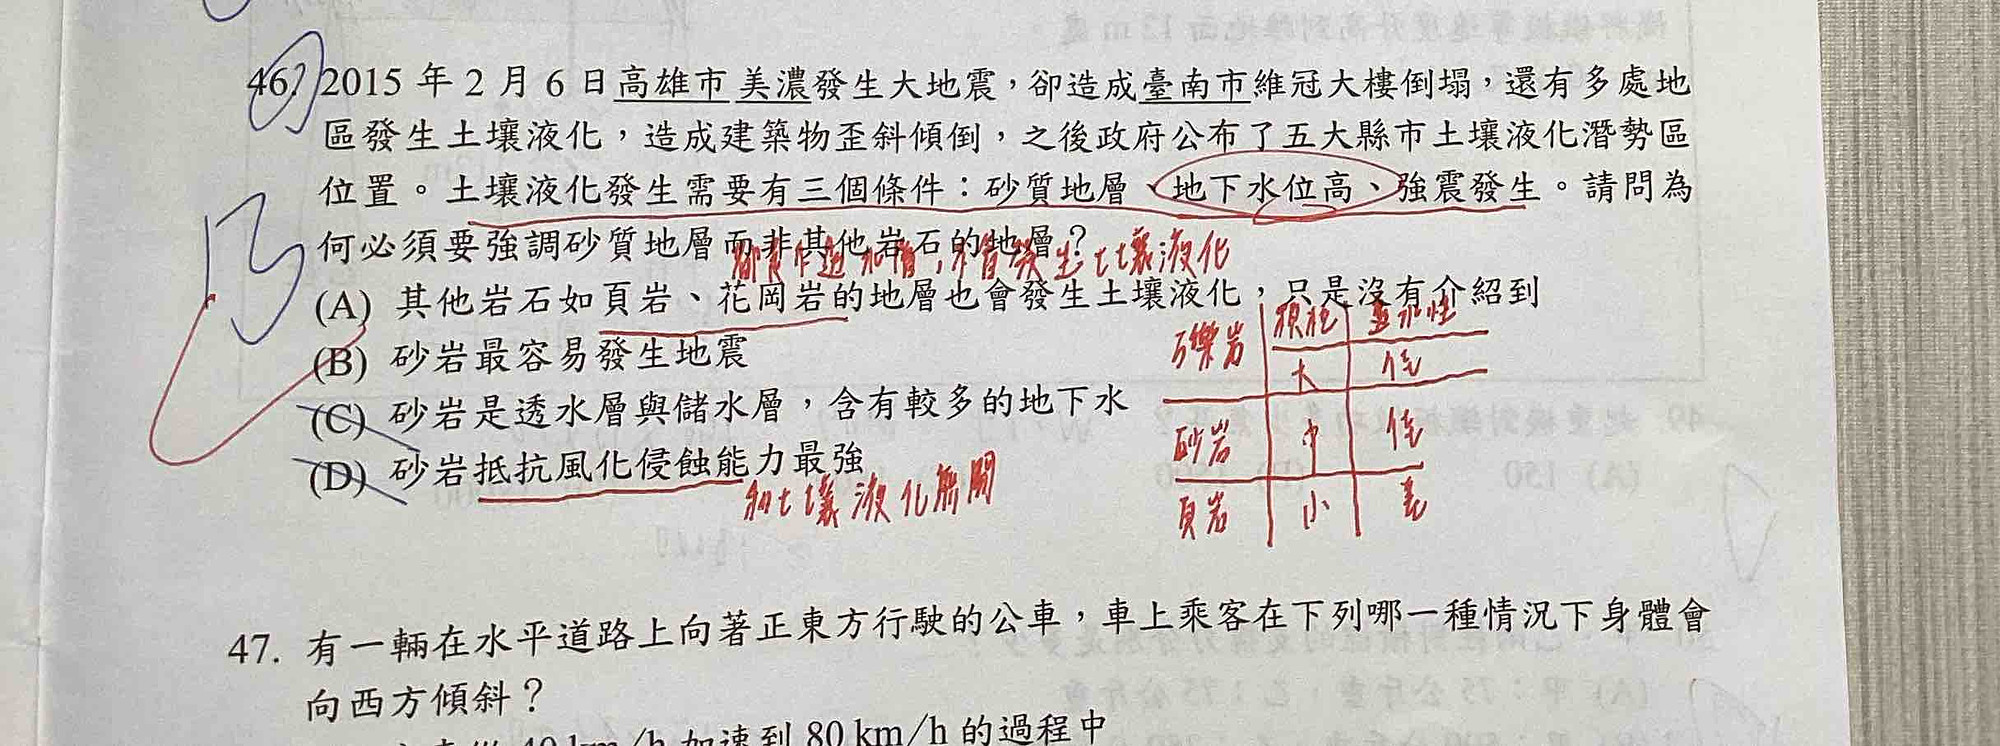 46. 2015 年 2 月 6 日高雄市美濃發生大地震，卻造成臺南市維冠大樓倒塌，還有多處地
區發生土壤液化，造成建築物歪斜傾倒，之後政府公布了五大縣市土壤液化潛勢區
位置。土壤液化發生需要有三個條件：砂質地層、地下水位高、強震發生。請問為
何必須要強調砂質地層而非其他岩石的地層？
都是不透水層，不會發生土壤液化
(A) 其他岩石如頁岩、花岡岩的地層也會發生土壤液化，只是沒有介紹到
(B) 砂岩最容易發生地震
(C) 砂岩是透水層與儲水層，含有較多的地下水
(D) 砂岩抵抗風化侵蝕能力最強
和土壤液化無關
顆粒 透水性
礫岩 大 佳
砂岩 中 佳
頁岩 小 差
47. 有一輛在水平道路上向著正東方行駛的公車，車上乘客在下列哪一種情況下身體會
向西方傾斜？
40 km/h 加速到 80 km/h 的過程中